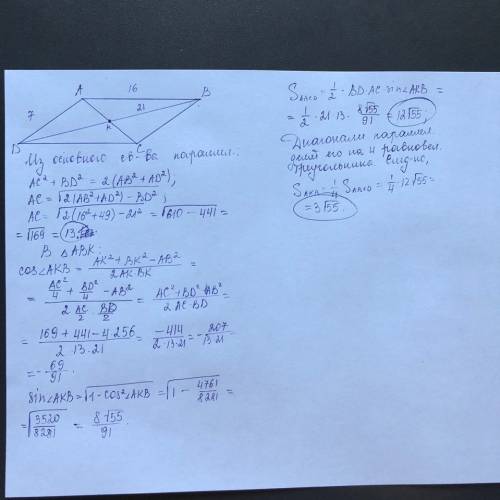 A 16 B
7 21
K
D C
Из основного св-ва параллел.:
AC² + BD² = 2(AB² + AD²);
AC = √2(AB² + AD²) - BD²;
AC = √2(16² + 49) - 21² = √610 - 441 =
= √169 = 13.
В △ABK:
cos∠AKB = (AK² + BK² - AB²)/(2AK·BK) =
= (AC²/4 + BD²/4 - AB²)/(2 AC/2 · BD/2) = (AC² + BD² - 4B²)/(2 AC·BD) =
= (169 + 441 - 4·256)/(2·13·21) = -414/(2·13·21) = -207/(13·21) =
= -69/91.
sin∠AKB = √1 - cos²∠AKB = √1 - 4761/8281 =
= √3520/8281 = 8√55/91.
S = 1/2 · BD·AC sin∠AKB =
= 1/2 · 21·13 · 8√55/91 = 12√55,
Диагонали параллел.
делят его на 4 равновел.
треугольника. След-но,
S = 1/4 S = 1/4 · 12√55 =
= 3√55.